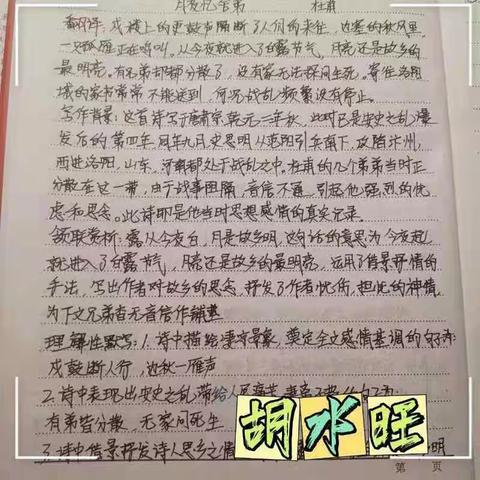 月夜忆舍弟 杜甫
翻译：戍楼上的更鼓声隔断了人们的来往，边塞的秋风里，
一只孤雁正在鸣叫。从今夜就进入了白露节气，月亮还是故乡的
最明亮。有兄弟却都分散了，没有家无法探问生死。寄往洛阳
城的家书常常不能送到，何况战乱频繁没有停止。
写作背景：这首诗写于唐肃宗乾元二年秋，此时已是安史之乱爆
发后的第四年，同年九月史思明从范阳引兵南下，攻陷汴州，
西进洛阳，山东、河南都处于战乱之中。杜甫的几个弟弟当时正
分散在这一带，由于战事阻隔，音信不通，引起他强烈的忧
虑和思念。此诗即是他当时思想感情的真实记录。
颔联赏析：露从今夜白，月是故乡明，这句话的意思为今夜起
就进入了白露节气，月亮还是故乡的最明亮，运用了借景抒情的
手法，写出作者对故乡的思念，抒发了作者忧伤、担忧的神情，
为下文兄弟杳无音信作铺垫
理解性默写：1.诗中描绘凄凉景象，奠定全文感情基调的句子：
戍鼓断人行，边秋一雁声
2.诗中表现出安史之乱带给人民
有弟皆分散，无家问死生
3.诗中借景抒发诗人思乡之情 明
胡水旺
第 页